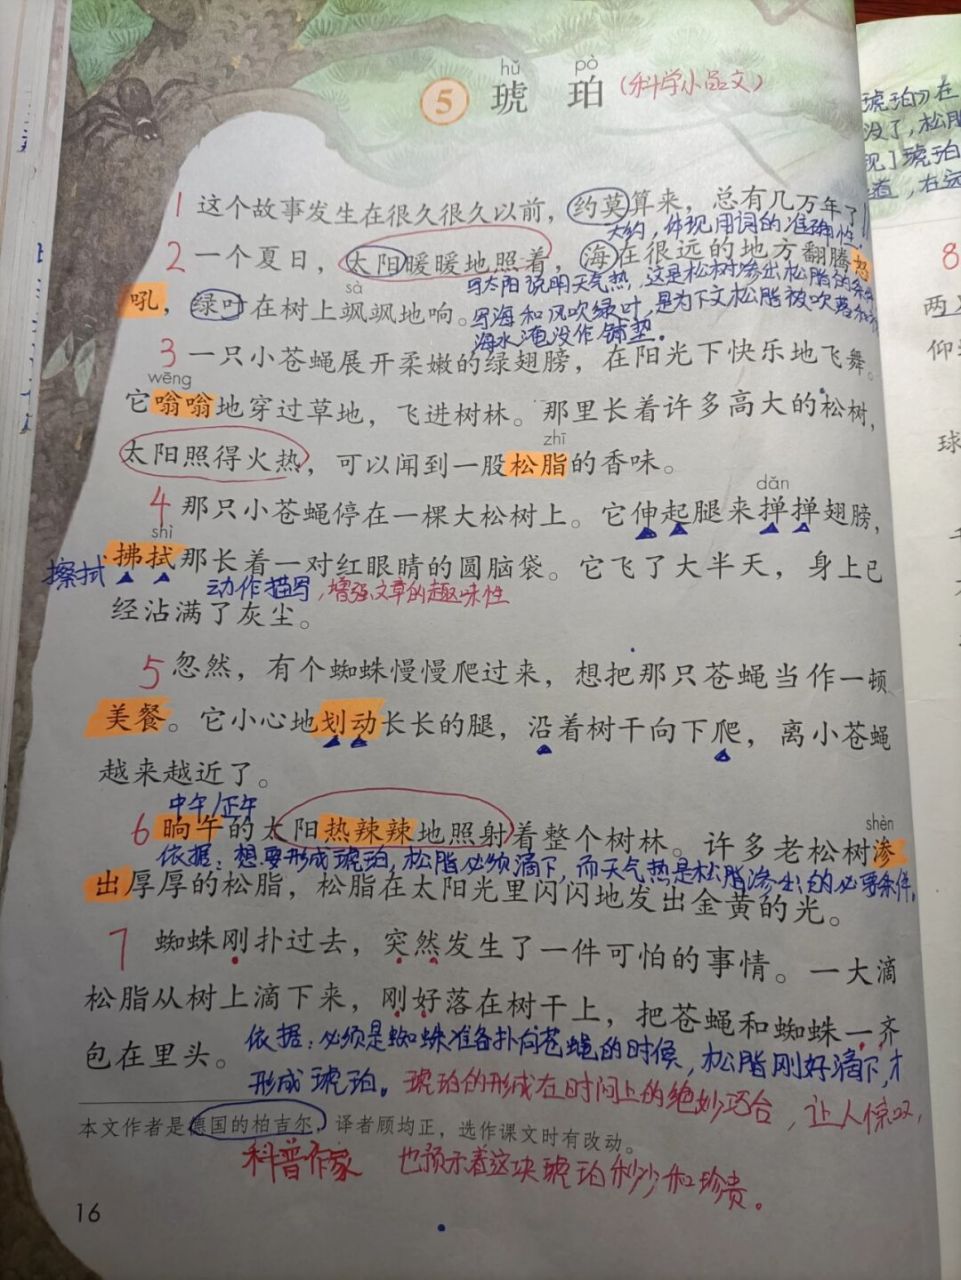 hǔ pò
5 琥 珀 (科学小品文)
1 这个故事发生在很久很久以前，约莫算来，总有几万年了
大约，体现用词的准确性。
2 一个夏日，太阳暖暖地照着，海在很远的地方翻腾怒
写太阳说明天气热，这是松树渗出松脂的条件
sà
吼，绿叶在树上飒飒地响。
写海和风吹绿叶，是为下文松脂被吹落和被
海水淹没作铺垫。
3 一只小苍蝇展开柔嫩的绿翅膀，在阳光下快乐地飞舞。
wēng
它嗡嗡地穿过草地，飞进树林。那里长着许多高大的松树，
zhī
太阳照得火热，可以闻到一股松脂的香味。
dǎn
4 那只小苍蝇停在一棵大松树上。它伸起腿来掸掸翅膀，
shì
擦拭
拂拭那长着一对红眼睛的圆脑袋。它飞了大半天，身上已
动作描写，增强文章的趣味性
经沾满了灰尘。
5 忽然，有个蜘蛛慢慢爬过来，想把那只苍蝇当作一顿
美餐。它小心地划动长长的腿，沿着树干向下爬，离小苍蝇
越来越近了。
中午/正午
shèn
6 晌午的太阳热辣辣地照射着整个树林。许多老松树渗
依据：想要形成琥珀，松脂必须滴下，而天气热是松脂渗出的必要条件，
出厚厚的松脂，松脂在太阳光里闪闪地发出金黄的光。
7 蜘蛛刚扑过去，突然发生了一件可怕的事情。一大滴
松脂从树上滴下来，刚好落在树干上，把苍蝇和蜘蛛一齐
包在里头。
依据：必须是蜘蛛准备扑向苍蝇的时候，松脂刚好滴下，才
形成琥珀。琥珀的形成在时间上的绝妙巧合，让人惊叹，
本文作者是德国的柏吉尔，译者顾均正，选作课文时有改动。
科普作家 也预示着这块琥珀稀少和珍贵。
16
琥珀》在
没了，松脂
现］琥珀
道，在远
8
两
仰
球